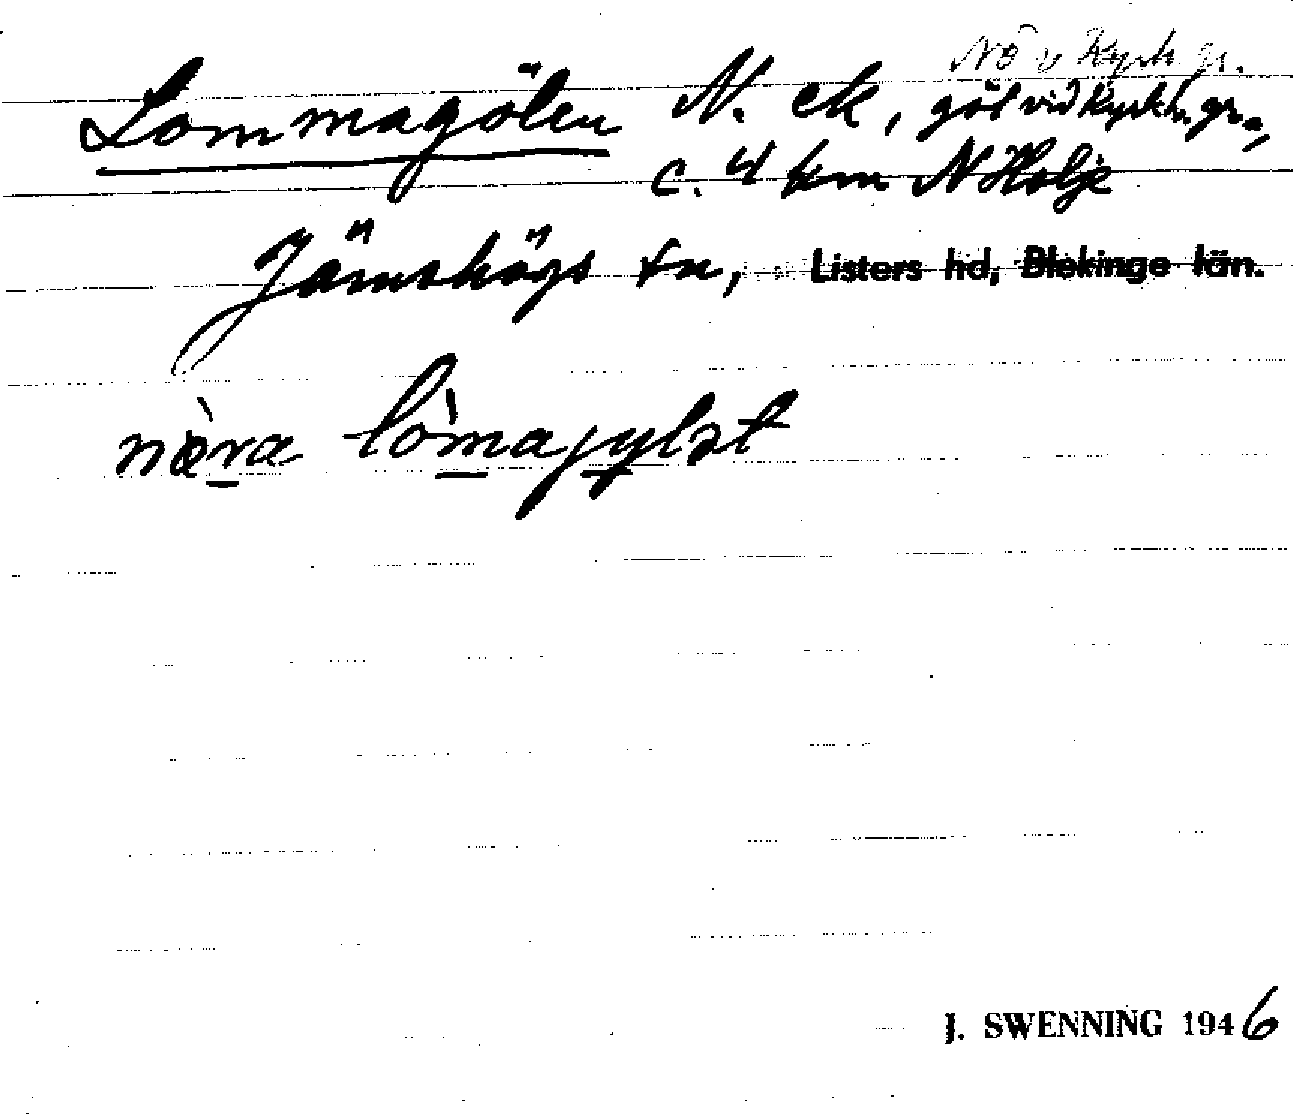 NÖ v Kyrk gr.
Lommagölen N. ek, göl vid Kyrkh. gr.,
c. 4 km N Holje
Jämshögs sn, Listers hd, Blekinge län.
næ̀ra lòmajylət
J. SWENNING 1946